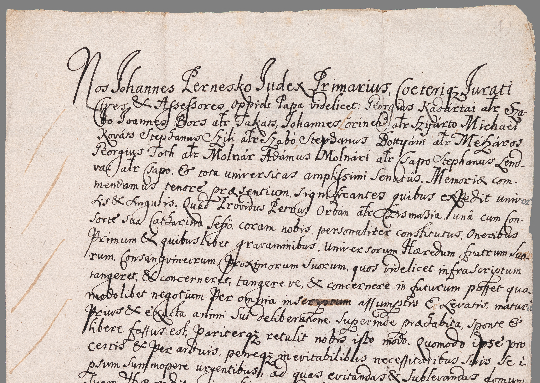 Nos Johannes Pernesko Judex Primarius, Coeteriq Jurati
Cives, & Assessores oppidi Papa videlicet Georgius Kadartai alr Sza-
bo Joannes Bors alr Takats, Johannes alr Szijarto Michael
Kovats Stephanus Szih alr Szabo Stephanus Bottyani alr Meszaros
Georgius Toth alr Molnar Adamus Molnari alr Csapo Stephanus Lend-
vai alr Csapo. & tota universitas amplissimi Senatus, Memoriæ com-
mendamus tenore præsentium, significantes quibus expedit univer
sis & singulis. Quod Providus Petrus Orban alr una cum con-
sorte sua Catharina coram nobis personaliter constitutus, Oneribus
Primum & quibuslibet gravaminibus, universorum Hæredum, fratrum suo-
rum Consanguineorum, Proximorum suorum, quos videlicet infrascriptum
tangeret, & concerneret, tangere ve, & concernere in futurum posset quo-
modolibet negotium Per omnia in se assumptis & Levatis, matur
Prius & exacta animi sui deliberatione. Superinde præhabita sponte &
libere fassus est, pariterq retulit nobis isto modo. Quomodo ipse pro
certis & per arduis, penesq inevitabilibus necessitatibus suis se i-
psum summopere urgentibus, ad quas evitandas & sublevandas domum